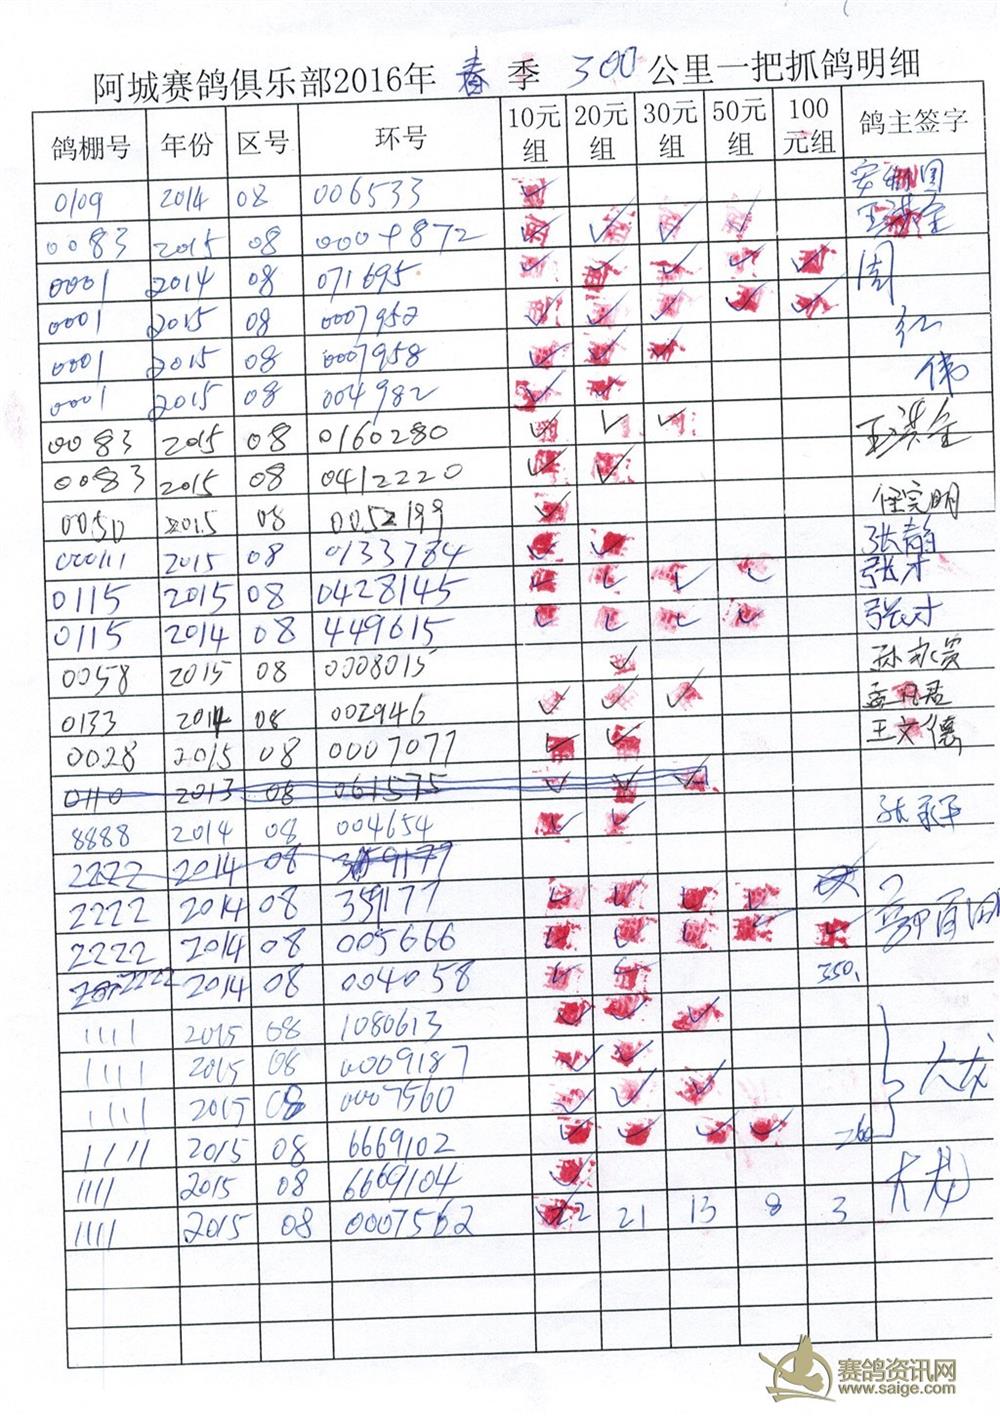 阿城赛鸽俱乐部2016年 春 季 300 公里一把抓鸽明细
鸽棚号 年份 区号 环号 10元组 20元组 30元组 50元组 100元组 鸽主签字
0109 2014 08 006533 ✓
0083 2015 08 0009872 ✓ ✓ ✓ ✓ 王洪全
0001 2014 08 071695 ✓ ✓ ✓ ✓ ✓ 周
0001 2015 08 0007952 ✓ ✓ ✓ ✓ ✓ 红
0001 2015 08 0007958 ✓ ✓ ✓
0001 2015 08 004982 ✓ ✓ 伟
0083 2015 08 0160280 ✓ ✓ ✓ 王洪全
0083 2015 08 0412220 ✓ ✓
0050 2015 08 0052199 ✓ 任宪明
000111 2015 08 0133784 ✓ ✓ 张静
0115 2015 08 0428145 ✓ ✓ ✓ ✓ 张才
0115 2014 08 449615 ✓ ✓ ✓ ✓ 张才
0058 2015 08 0008015 ✓ 孙永贵
0133 2014 08 002946 ✓ ✓ ✓ 孟凡君
0028 2015 08 0007077 ✓ ✓ 王文德
0110 2013 08 061575 ✓ ✓ ✓
8888 2014 08 004654 ✓ ✓
2222 2014 08 359177
2222 2014 08 359177 ✓ ✓ ✓ ✓
2222 2014 08 005666 ✓ ✓ ✓ ✓ ✓
2222 2014 08 004058 ✓ ✓ 350
1111 2015 08 1080613 ✓ ✓ ✓
1111 2015 08 0009187 ✓ ✓ 大龙
1111 2015 08 0007560 ✓ ✓ ✓
1111 2015 08 6669102 ✓ ✓ ✓ ✓ 260
1111 2015 08 6669104 ✓ 大龙
1111 2015 08 0007562 ✓ 22 21 13 8 3
赛鸽资讯网
www.saige.com